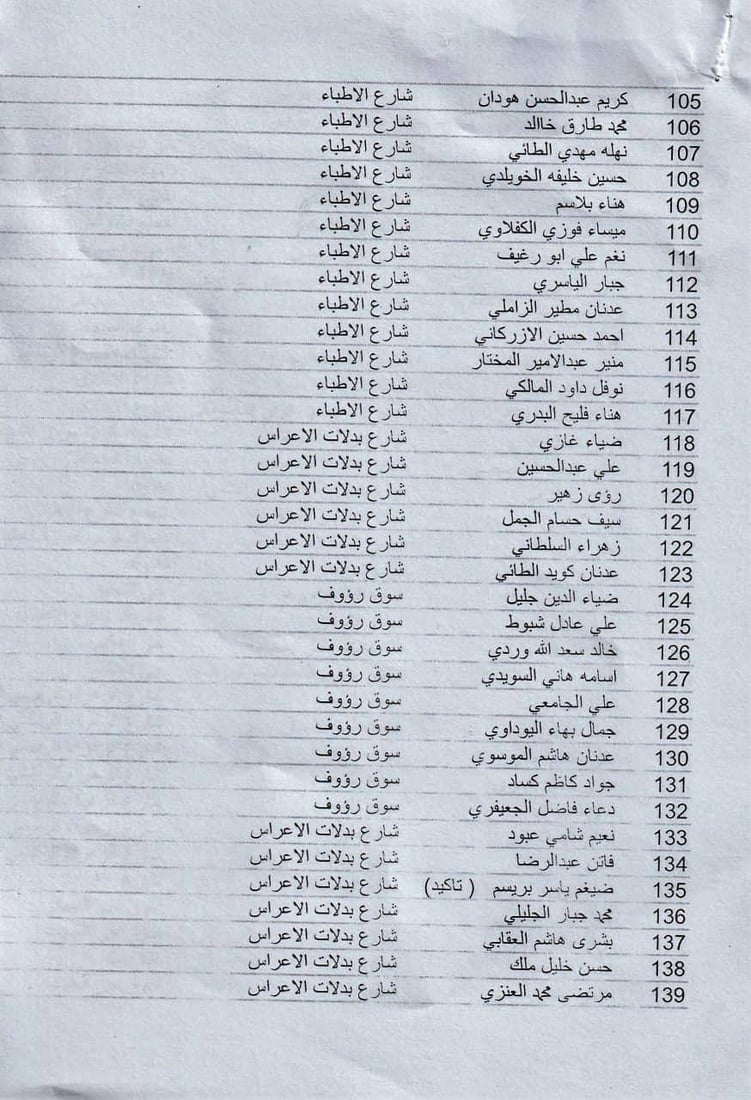 105 كريم عبدالحسن هودان شارع الاطباء
106 محمد طارق خاالد شارع الاطباء
107 نهله مهدي الطائي شارع الاطباء
108 حسين خليفه الخويلدي شارع الاطباء
109 هناء بلاسم شارع الاطباء
110 ميساء فوزي الكفلاوي شارع الاطباء
111 نغم علي ابو رغيف شارع الاطباء
112 جبار الياسري شارع الاطباء
113 عدنان مطير الزاملي شارع الاطباء
114 احمد حسين الازركاني شارع الاطباء
115 منير عبدالامير المختار شارع الاطباء
116 نوفل داود المالكي شارع الاطباء
117 هناء فليح البدري شارع الاطباء
118 ضياء غازي شارع بدلات الاعراس
119 علي عبدالحسين شارع بدلات الاعراس
120 رؤى زهير شارع بدلات الاعراس
121 سيف حسام الجمل شارع بدلات الاعراس
122 زهراء السلطاني شارع بدلات الاعراس
123 عدنان كويد الطائي شارع بدلات الاعراس
124 ضياء الدين جليل سوق رؤوف
125 علي عادل شبوط سوق رؤوف
126 خالد سعد الله وردي سوق رؤوف
127 اسامه هاني السويدي سوق رؤوف
128 علي الجامعي سوق رؤوف
129 جمال بهاء اليوداوي سوق رؤوف
130 عدنان هاشم الموسوي سوق رؤوف
131 جواد كاظم كساد سوق رؤوف
132 دعاء فاضل الجعيفري سوق رؤوف
133 نعيم شامي عبود شارع بدلات الاعراس
134 فاتن عبدالرضا شارع بدلات الاعراس
135 ضيغم ياسر بريسم ( تاكيد) شارع بدلات الاعراس
136 محمد جبار الجليلي شارع بدلات الاعراس
137 بشرى هاشم العقابي شارع بدلات الاعراس
138 حسن خليل ملك شارع بدلات الاعراس
139 مرتضى محمد العنزي شارع بدلات الاعراس